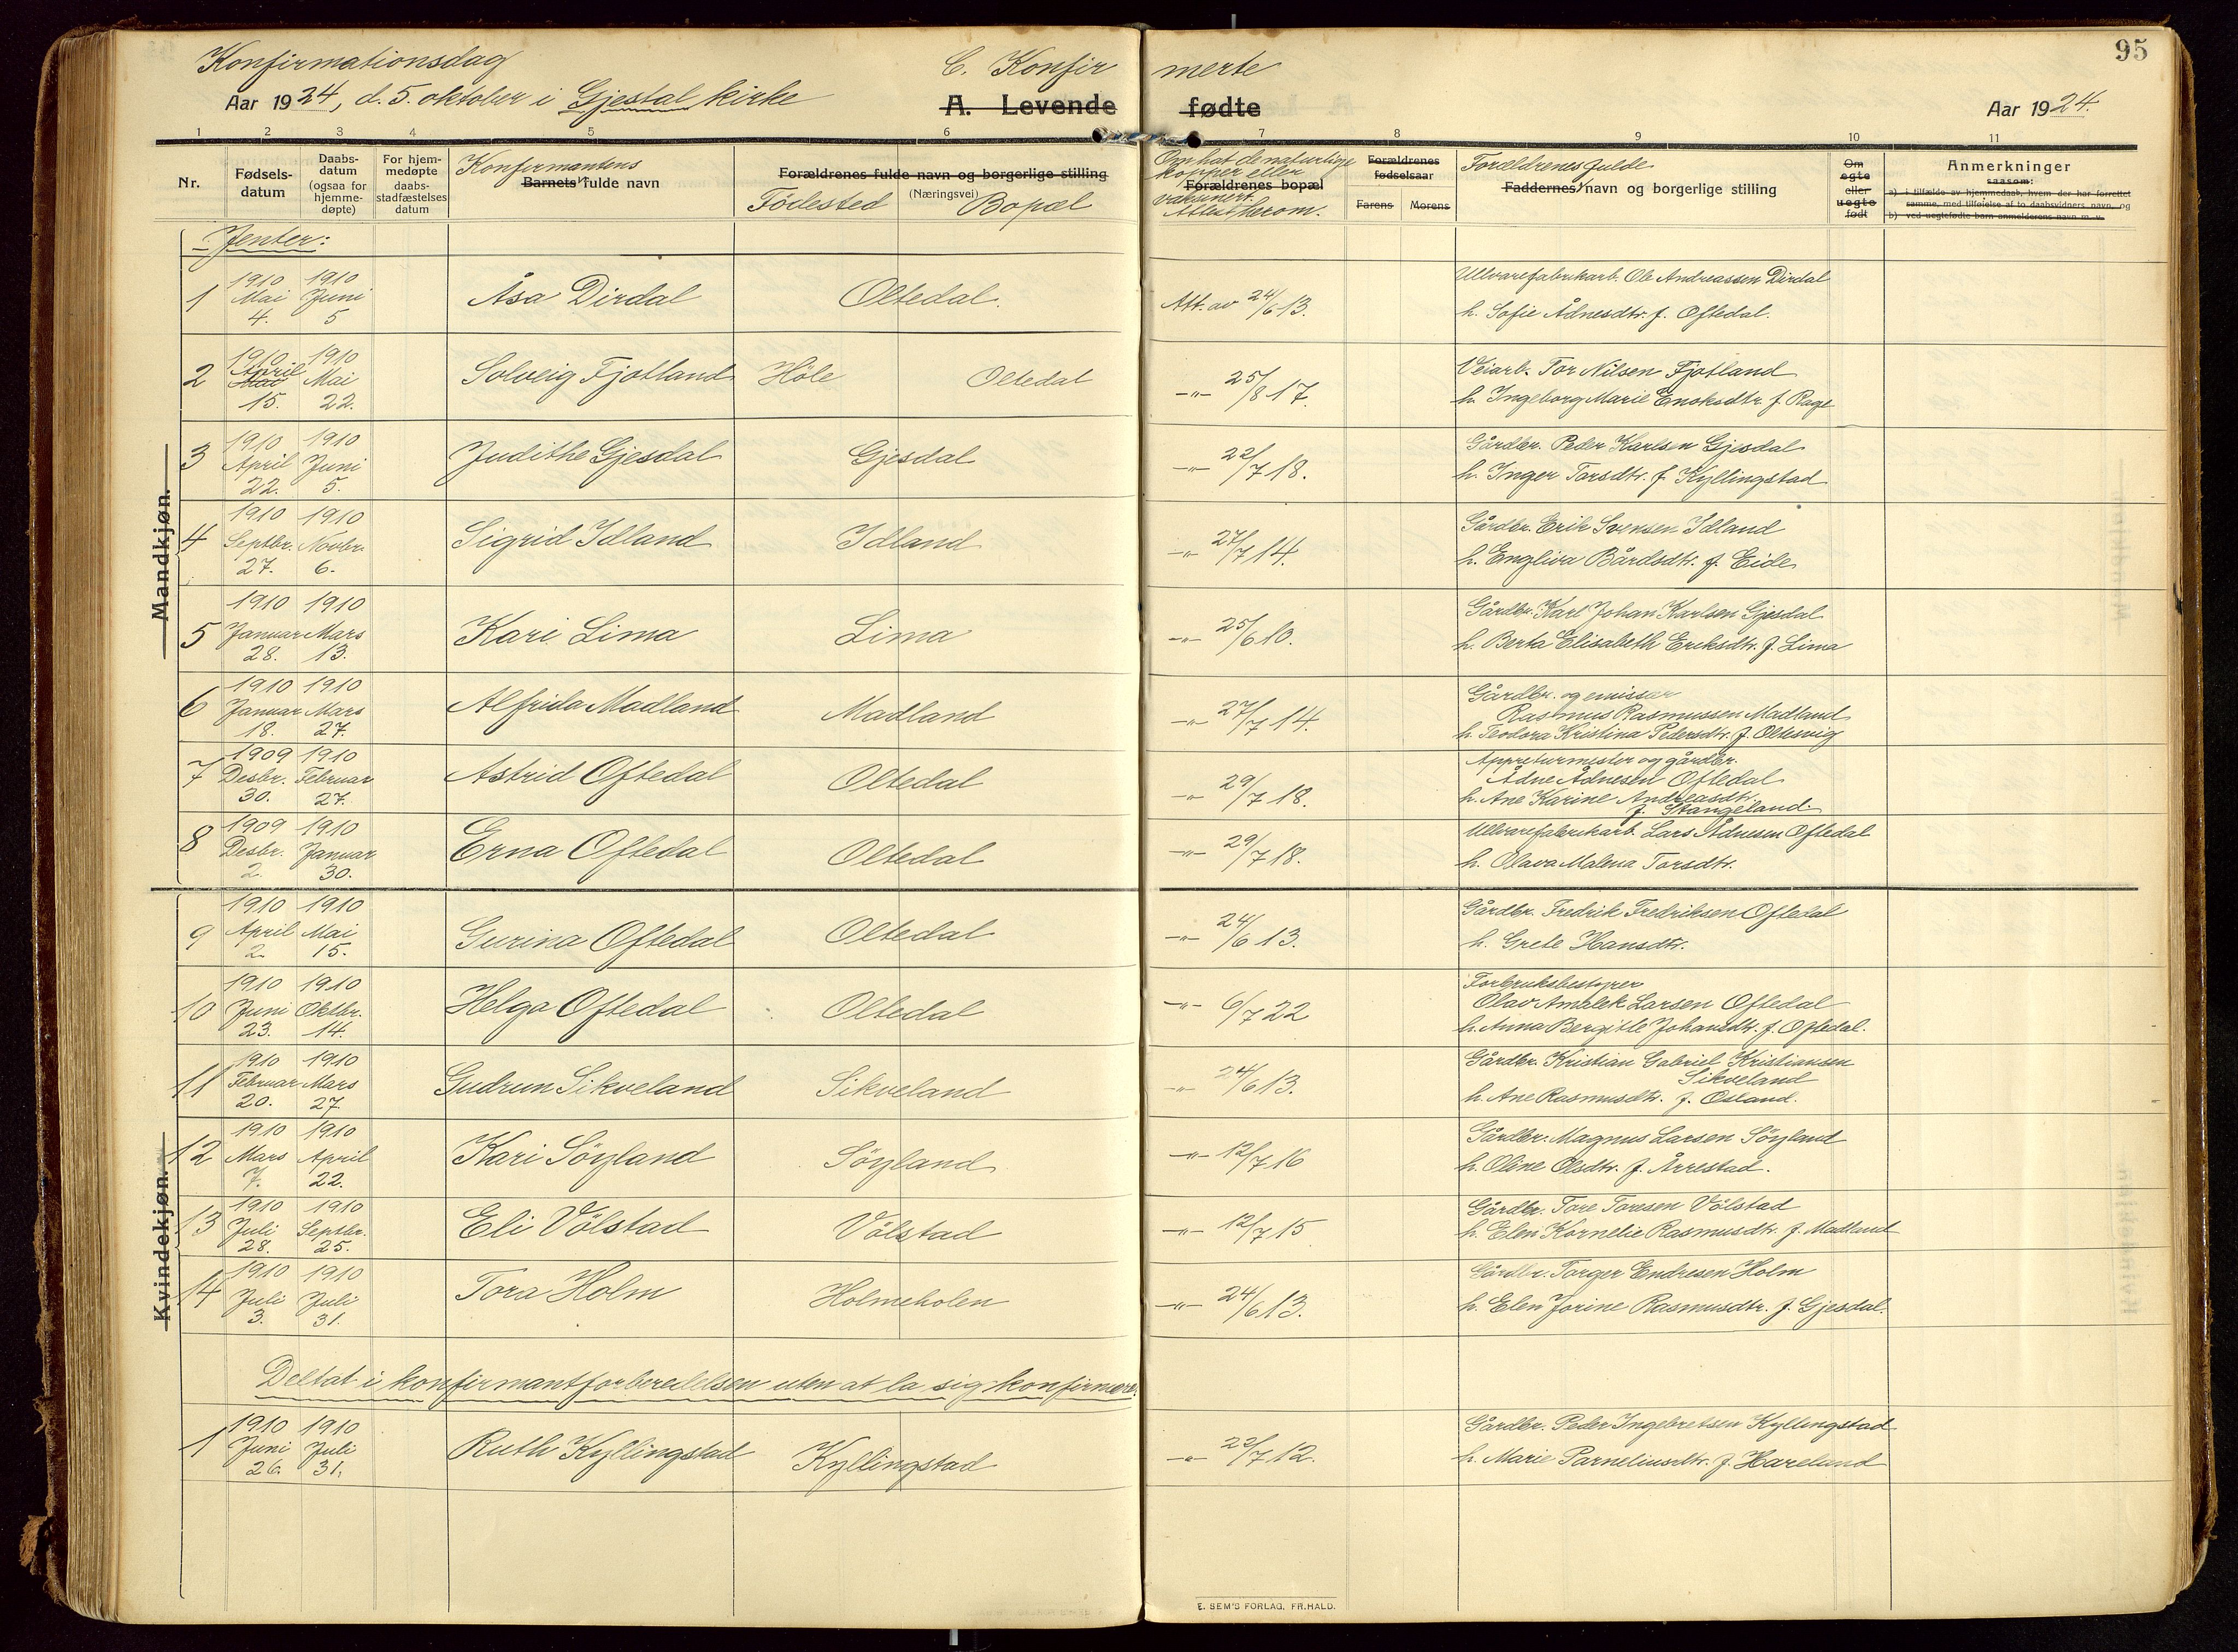 95
Konfirmationsdag
C. Konfir merte
Aar 1924, d. 5. oktober i Gjestal kirke
A. Levende fødte
Aar 1924.
1 2 3 4 5 6 7 8 9 10 11
Nr.
Fødsels-datum
Daabs-datum (ogsaa for hjemme-døpte)
For hjem-medøpte daabs-stadfæstelses datum
Konfirmantens
Barnets fulde navn
Forældrenes fulde navn og borgerlige stilling
(Næringsvei)
Födested Bopæl
Om hat de naturlige
kopper eller
Forældrenes bopæl
vaksinert.
Attest herom.
Forældrenes fødselsaar
Farens Morens
Forældrenes fulde
Faddernes navn og borgerlige stilling
Om egte eller uegte født
Anmerkninger
saasom:
a) i tilfælde av hjemmedaab, hvem der har forrettet
samme, med tilføielse af to daabsvidners navn, og
b) ved uegtefødte barn anmelderens navn m. v.
Mandkjøn.
Kvindekjøn.
Jenter:
1 1910 Mai 4. 1910 Juni 5 Åsa Dirdal Oltedal. Att. av 24/6 13. Ullvarefabrikarb. Ole Andreassen Dirdal
h. Sofie Ådnesdtr. f. Oftedal.
2 1910 April Mai 15. 1910 Mai 22. Solveig Fjotland Höle Oltedal -"- 25/8 17. Veiarb. Tor Nilsen Fjotland
h. Ingeborg Marie Enoksdtr. f. Rage
3 1910 April 22. 1910 Juni 5. Judithe Gjesdal Gjesdal -"- 22/7 18. Gårdbr. Peder Karlsen Gjesdal
h. Inger Torsdtr. f. Kyllingstad
4 1910 Septbr. 27. 1910 Novbr. 6. Sigrid Idland Idland -"- 27/7 14. Gårdbr. Erik Svensen Idland
h. Engliva Bårdsdtr. f. Eide
5 1910 Januar 28. 1910 Mars 13. Kari Lima Lima -"- 25/6 10. Gårdbr. Karl Johan Karlsen Gjesdal
h. Berta Elisabeth Eriksdtr. f. Lima
6 1910 Januar 18. 1910 Mars 27. Alfrida Madland Madland -"- 27/7 14. Gårdbr. og emissær
Rasmus Rasmussen Madland
h. Teodora Kristina Pedersdtr. f. Oltesvig
7 1909 Desbr. 30. 1910 Februar 27. Astrid Oftedal Oltedal -"- 29/7 18. Appreturmester og gårdbr.
Ådne Ådnesen Oftedal
h. Ane Karine Andreasdtr.
f. Stangeland.
8 1909 Desbr. 2. 1910 Januar 30. Erna Oftedal Oltedal -"- 29/7 18. Ullvarefabrikarb. Lars Ådnesen Oftedal
h. Olava Malena Torsdtr.
9 1910 April 2. 1910 Mai 15. Gurina Oftedal Oltedal -"- 24/6 13. Gårdbr. Fredrik Fredriksen Oftedal
h. Grete Hansdtr.
10 1910 Juni 23. 1910 Oktbr. 14. Helga Oftedal Oltedal -"- 6/7 22 Forbruksbestyrer
Olav Amalek Larsen Oftedal
h. Anna Bergitte Johansdtr. f. Oftedal.
11 1910 Februar 20. 1910 Mars 27 Gudrun Sikveland Sikveland -"- 24/6 13. Gårdbr. Kristian Gabriel Kristiansen
Sikveland
h. Ane Rasmusdtr. f. Osland.
12 1910 Mars 7. 1910 April 22. Kari Söyland Söyland -"- 12/7 16 Gårdbr. Magnus Larsen Söyland
h. Oline Olsdtr. f. Årrestad.
13 1910 Juli 28. 1910 Septbr. 25. Eli Völstad Völstad -"- 12/7 15 Gårdbr. Tore Toresen Völstad
h. Elen Kornelie Rasmusdtr. f. Madland
14 1910 Juli 3. 1910 Juli 31. Tora Holm Holmeholen -"- 24/6 13. Gårdbr. Torger Endresen Holm
h. Elen Jorine Rasmusdtr. f. Gjesdal.
Deltat i konfirmantforberedelsen uten at la sig konfirmere.
1 1910 Juni 26. 1910 Juli 31. Ruth Kyllingstad Kyllingstad -"- 22/7 12. Gårdbr. Peder Ingebretsen Kyllingstad
h. Marie Parneliusdtr. f. Hareland
E. SEM'S FORLAG. FR.HALD.